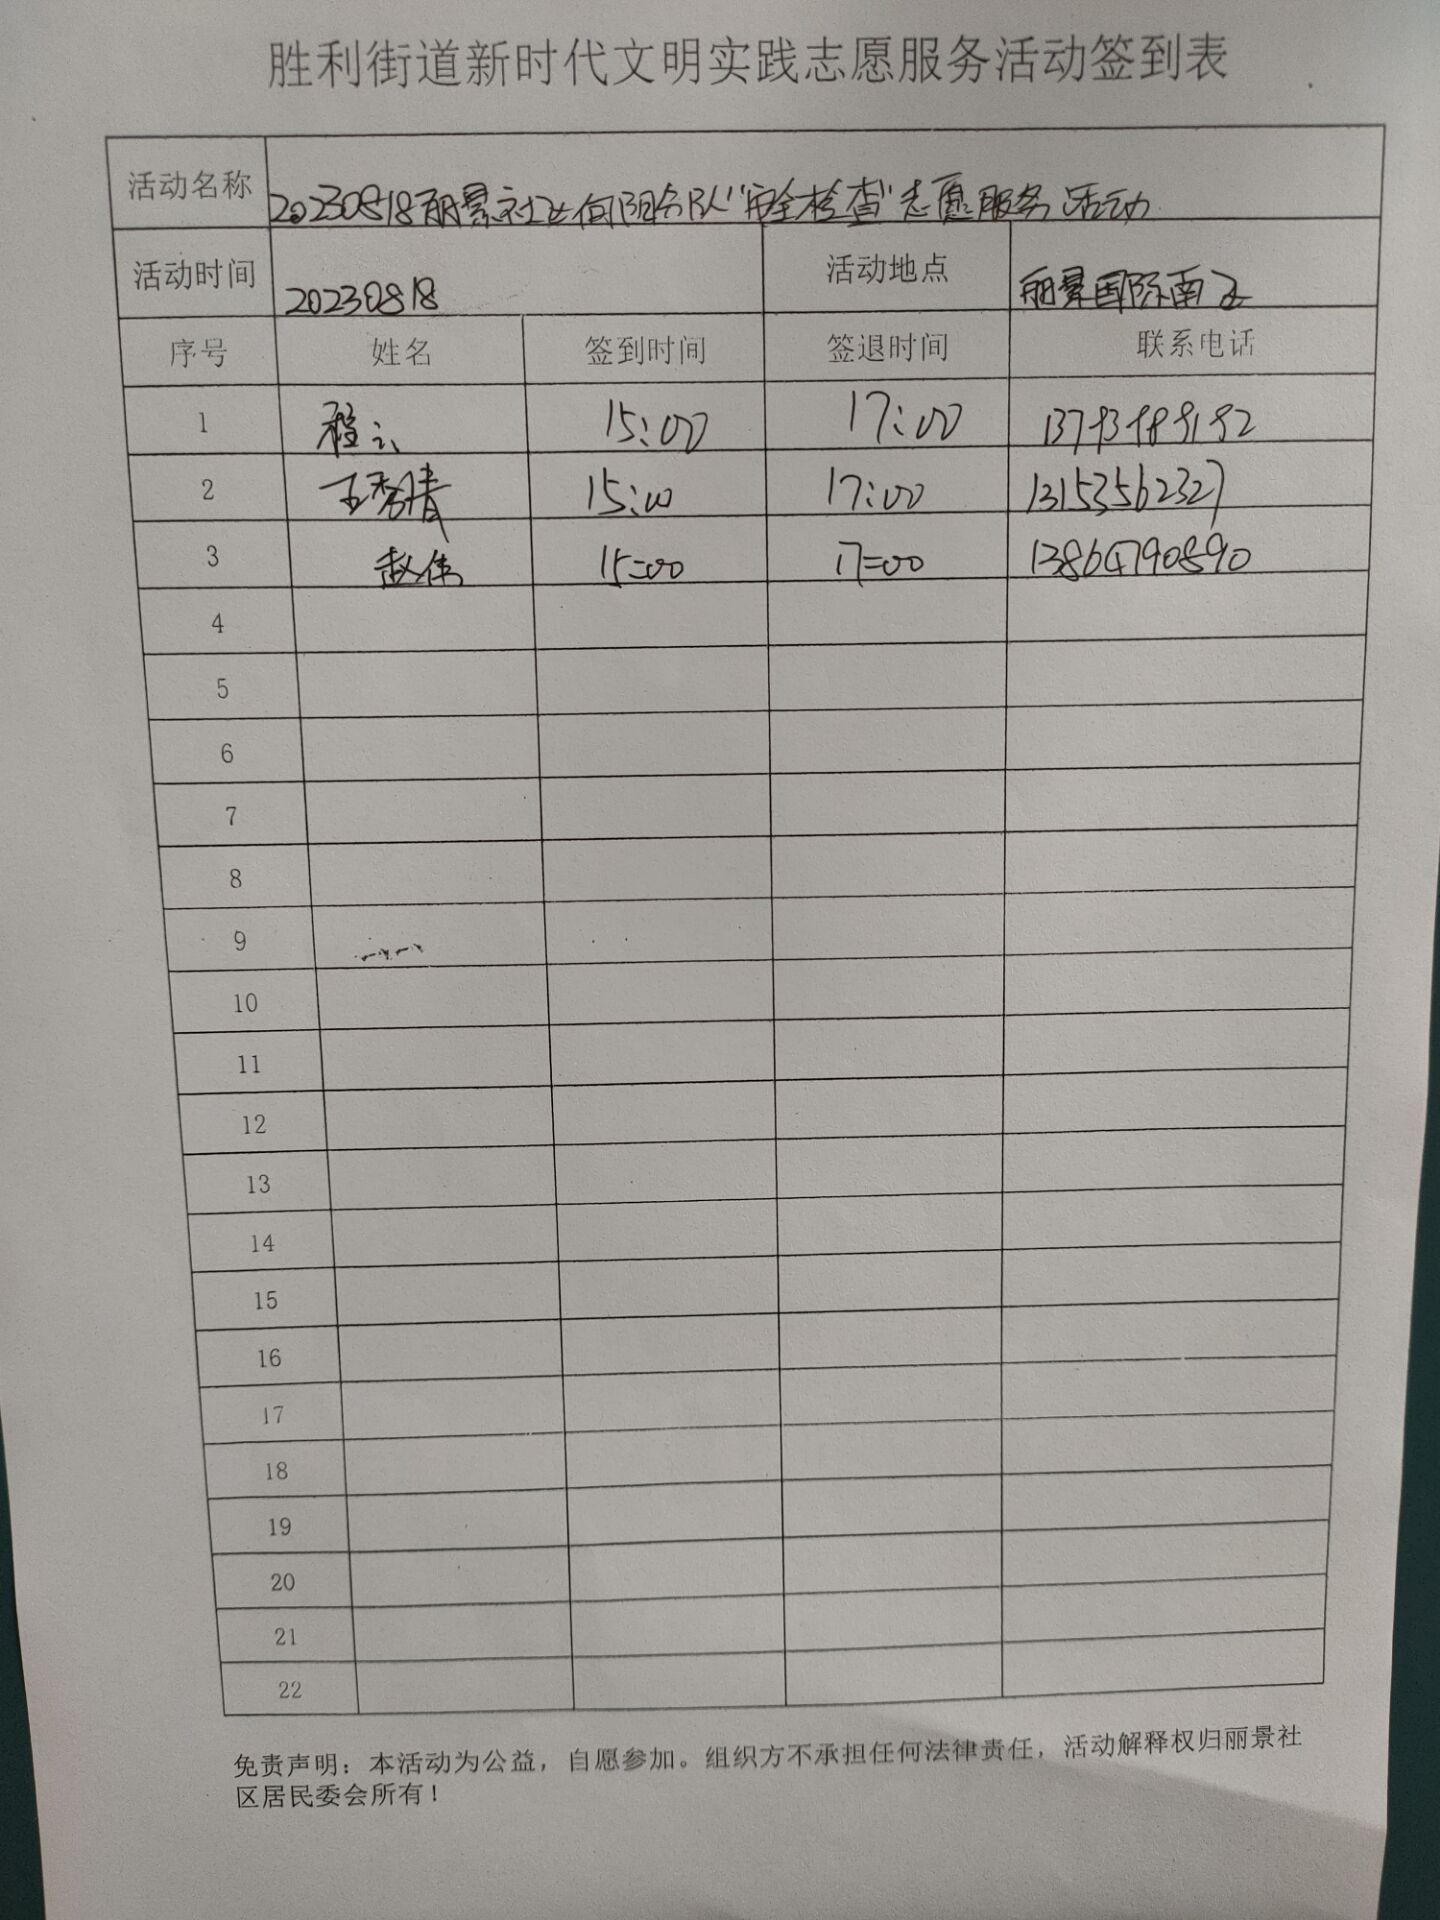 胜利街道新时代文明实践志愿服务活动签到表
活动名称 20230818丽景社区向阳务队"安全检查"志愿服务活动
活动时间 20230818 活动地点 丽景国际南区
序号 姓名 签到时间 签退时间 联系电话
1 程云 15:00 17:00
2 王秀清 15:00 17:00 13153562327
3 赵伟 15:00 17:00 13864790890
4
5
6
7
8
9
10
11
12
13
14
15
16
17
18
19
20
21
22
免责声明：本活动为公益，自愿参加。组织方不承担任何法律责任，活动解释权归丽景社
区居民委会所有！